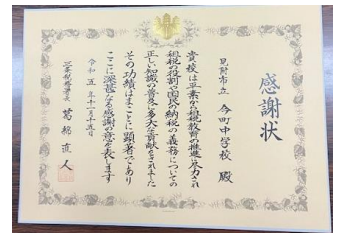 感謝状
見附市立 今町中学校 殿
貴校は平素から租税教育の推進に尽力され
租税の役割や国民の納税の義務についての
正しい知識の普及に多大な貢献をされました
その功績はまことに顕著であり
ここに深甚なる感謝の意を表します
令和五年十一月十五日
直人